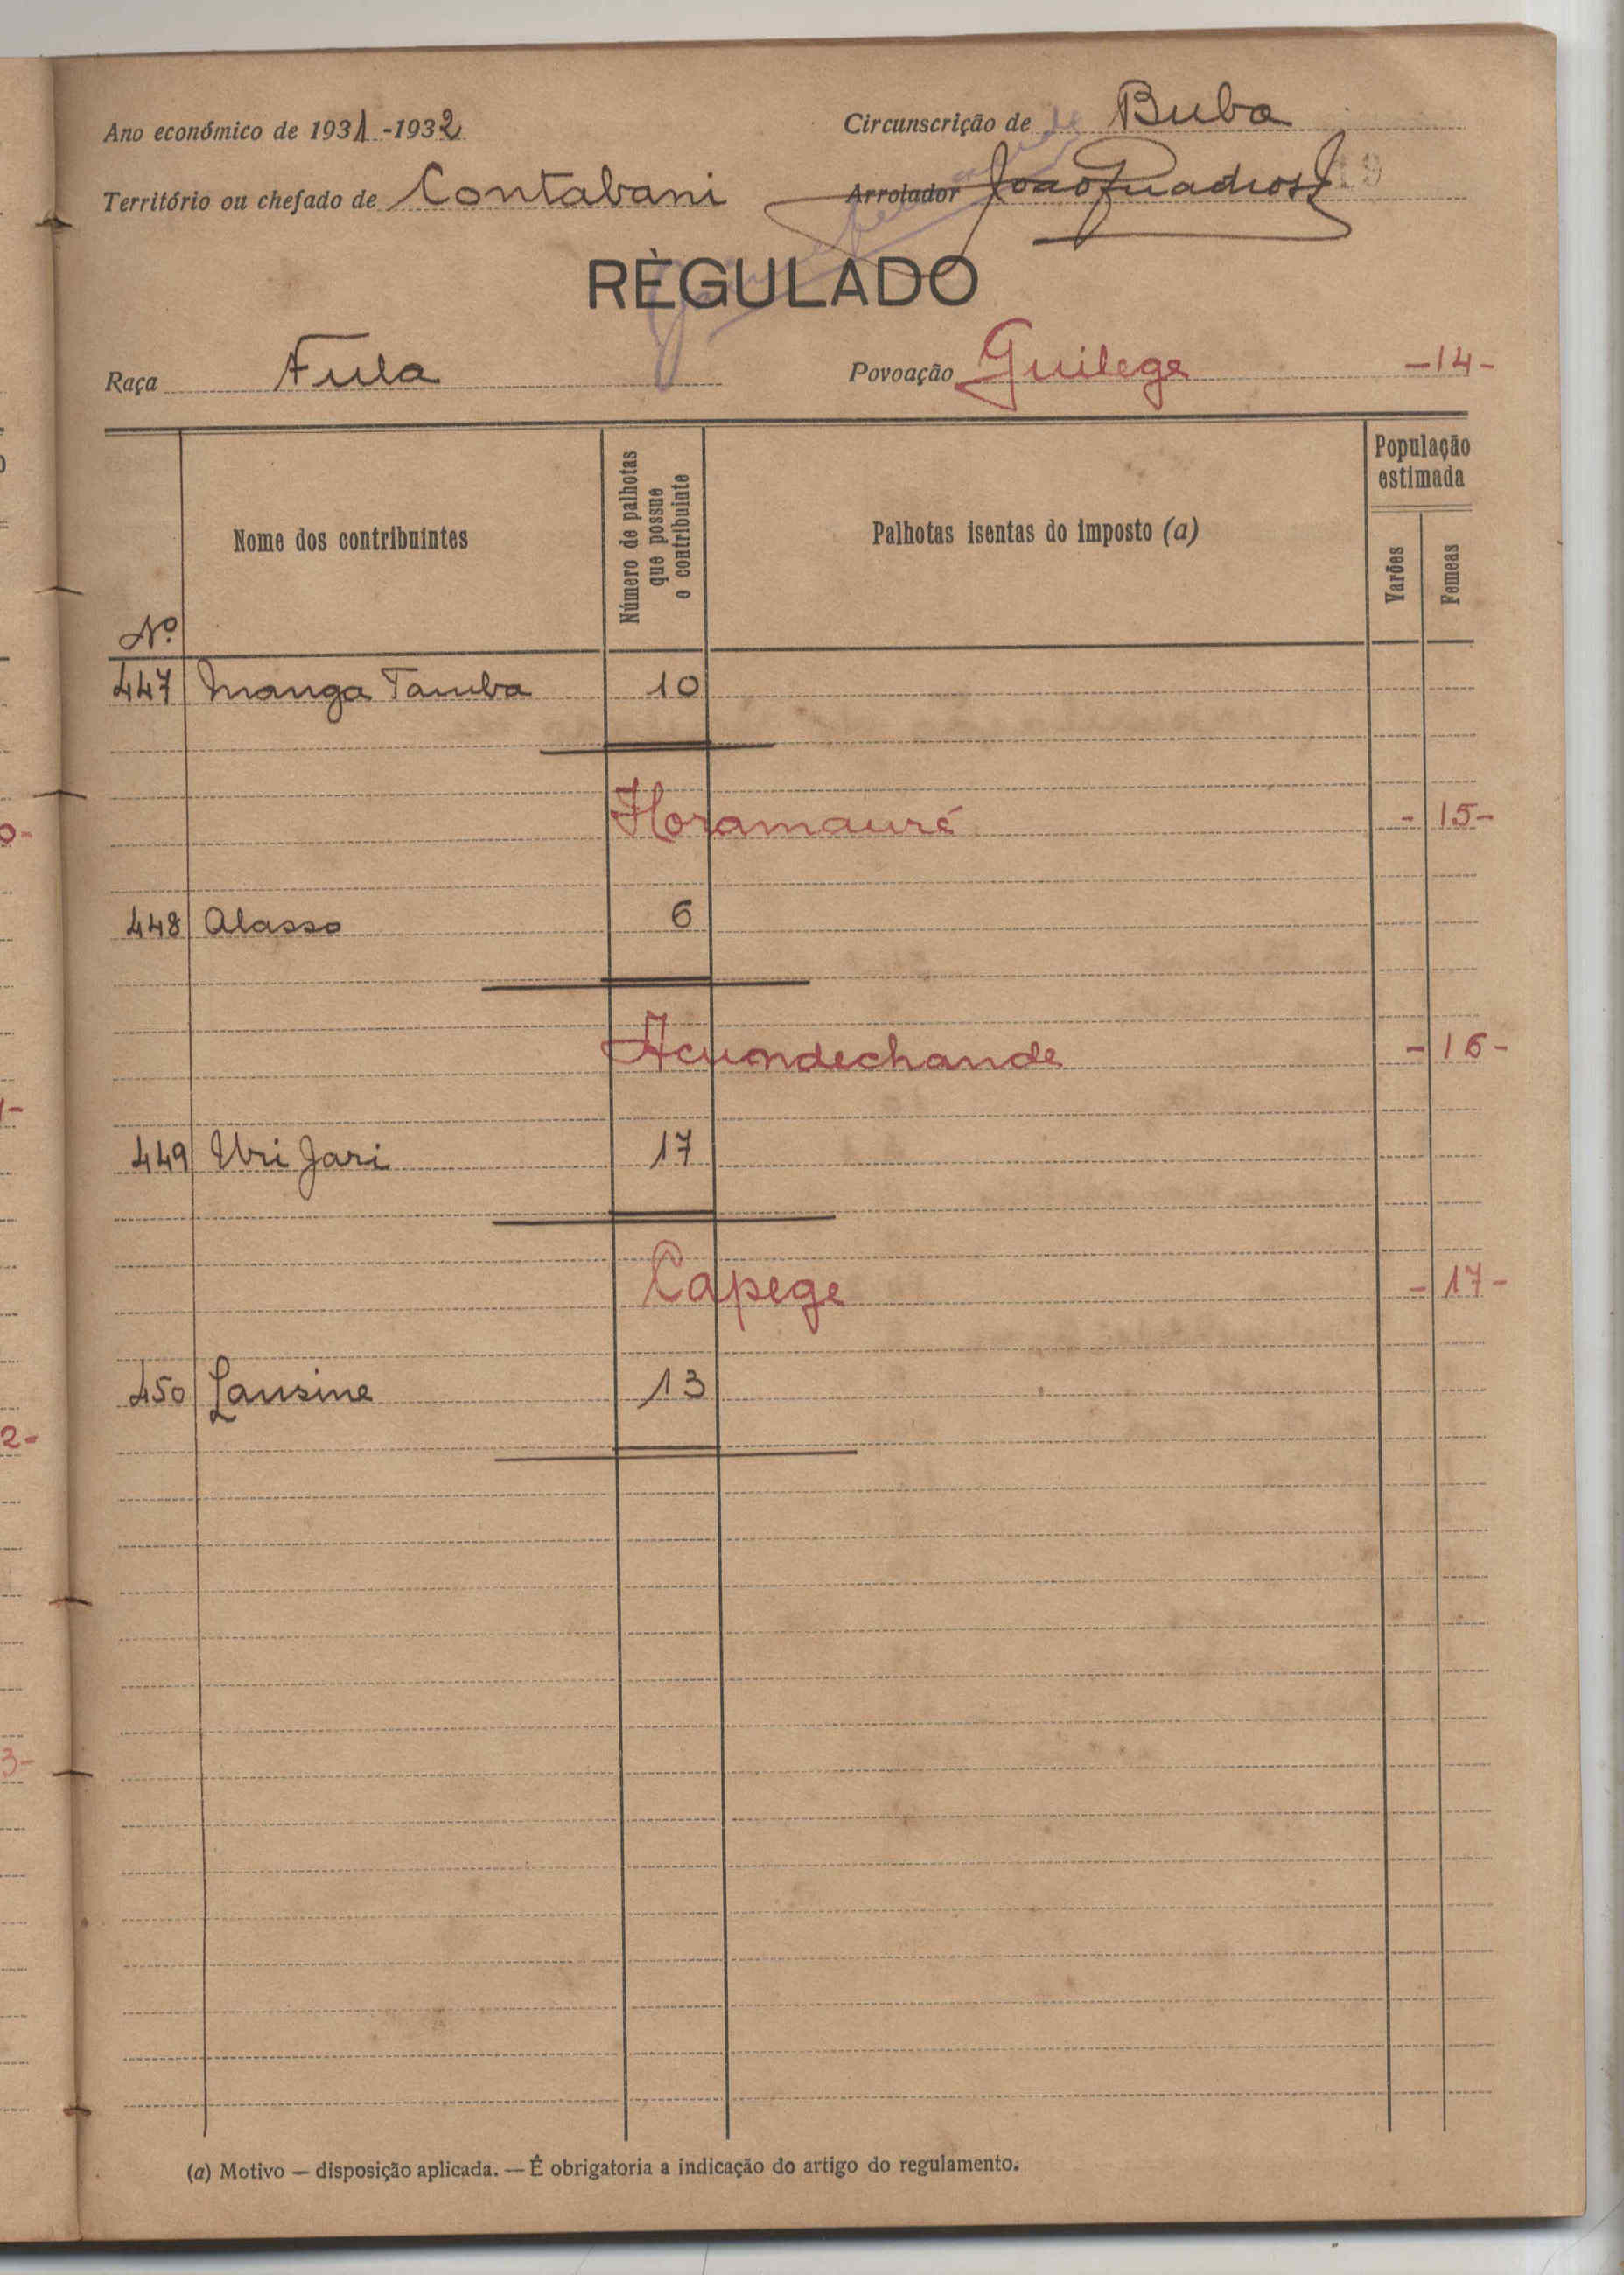 Ano económico de 1931-1932 Circunscrição de Buba
Território ou chefado de Contabani Arrolador João Quadros 19
RÈGULADO
Raça Fula Povoação Guilege -14-
Nº
Nome dos contribuintes
Número de palhotas
que possue
o contribuinte
Palhotas isentas do imposto (a)
População
estimada
Varões Femeas
447 Manga Tamba 10
Horamauré -15-
448 Alasso 6
Acuondechande -16-
449 Uri Jari 17
Capege -17-
450 Lansine 13
(a) Motivo — disposição aplicada. — É obrigatoria a indicação do artigo do regulamento.